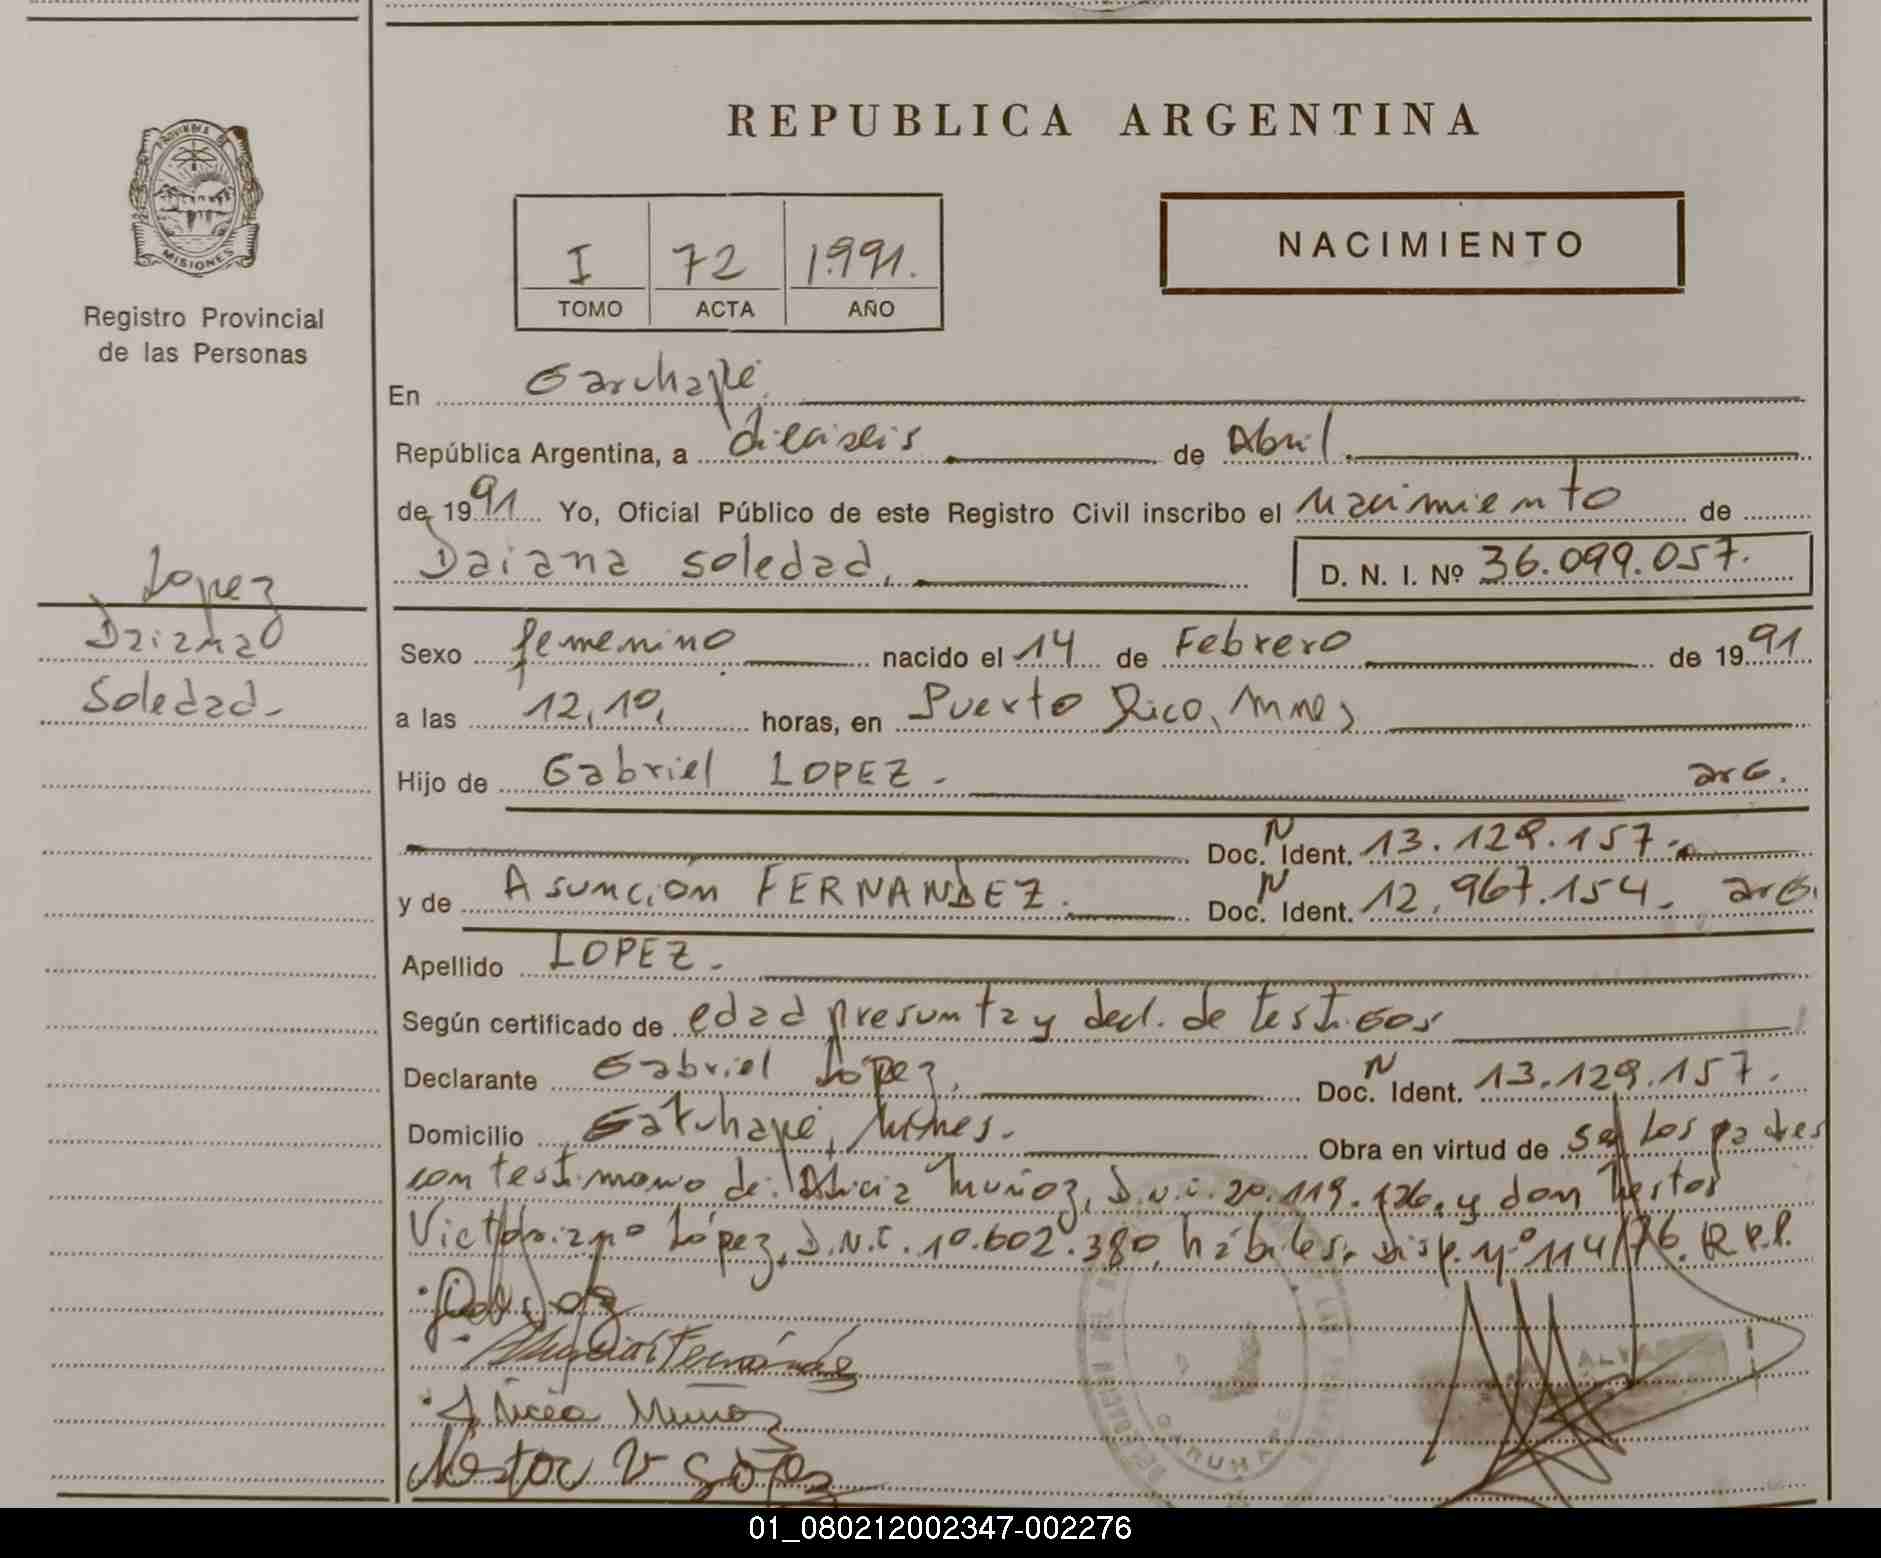 REPUBLICA ARGENTINA
PROVINCIA DE
MISIONES
Registro Provincial
de las Personas
I 72 1991.
TOMO ACTA AÑO
NACIMIENTO
En Garuhapé
República Argentina, a dieciseis de Abril
de 1991 Yo, Oficial Público de este Registro Civil inscribo el nacimiento de
Daiana Soledad, D. N. I. Nº 36.099.057.
Lopez
Daiana
Soledad-
Sexo femenino nacido el 14 de Febrero de 1991
a las 12,10, horas, en Puerto Rico, Mnes
Hijo de Gabriel LOPEZ - arg.
Doc. N Ident. 13.129.157.
y de Asunción FERNANDEZ. Doc. N Ident. 12.967.154. arg.
Apellido LOPEZ -
Según certificado de edad presunta y decl. de testigos
Declarante Gabriel López, Doc. N Ident. 13.129.157.
Domicilio Garuhapé, Mnes. Obra en virtud de ser los padres
con testimonio de: Alicia Muñoz, D.N.I. 20.119.126. y don Nestor
Victoriano López, D.N.I. 10.602.380, hábiles. Disp. Nº 114/76. R.P.P.
Fernández
Alicia Muñoz
Nestor V López
GARUHAPE
01_080212002347-002276